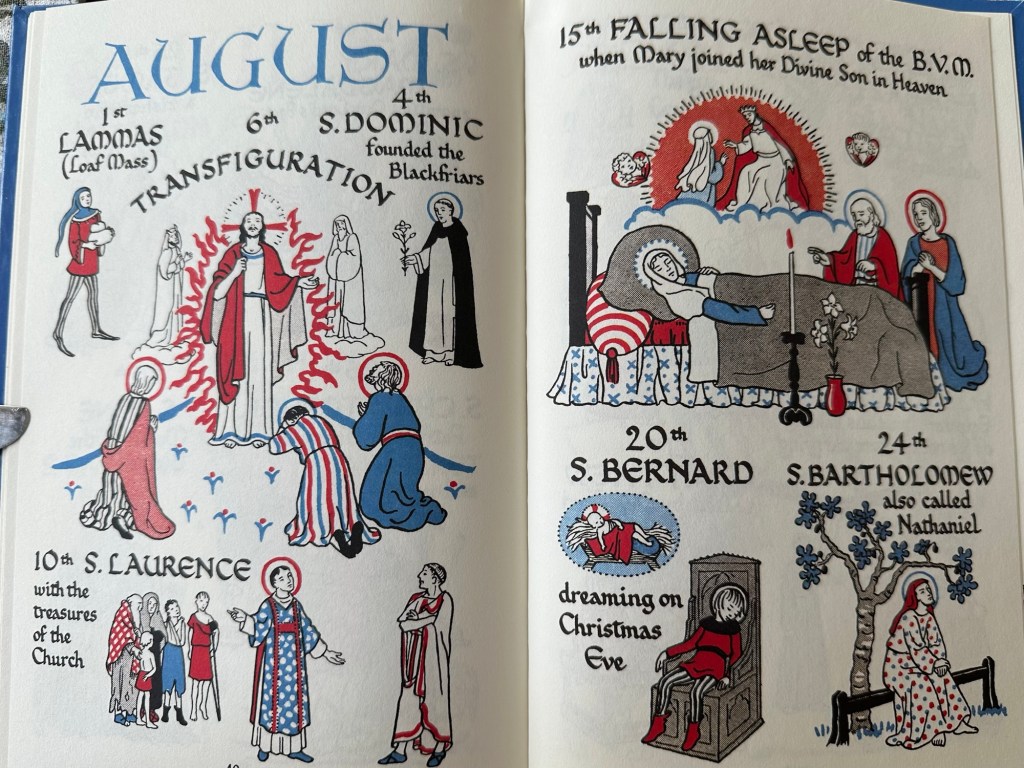 AUGUST
1st
LAMMAS
(Loaf Mass)
6th
TRANSFIGURATION
4th
S. DOMINIC
founded the
Blackfriars
10th S. LAURENCE
with the
treasures
of the
Church
15th FALLING ASLEEP of the B.V.M.
when Mary joined her Divine Son in Heaven
20th
S. BERNARD
dreaming on
Christmas
Eve
24th
S. BARTHOLOMEW
also called
Nathaniel